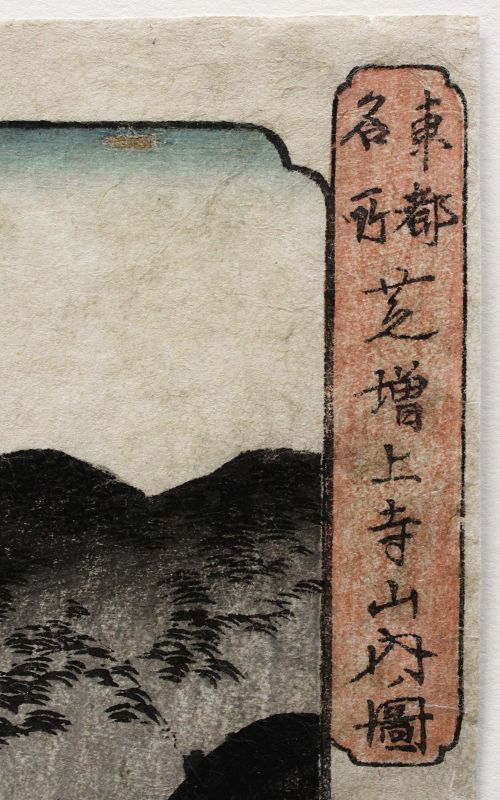 東都
名所
芝増上寺山内圖